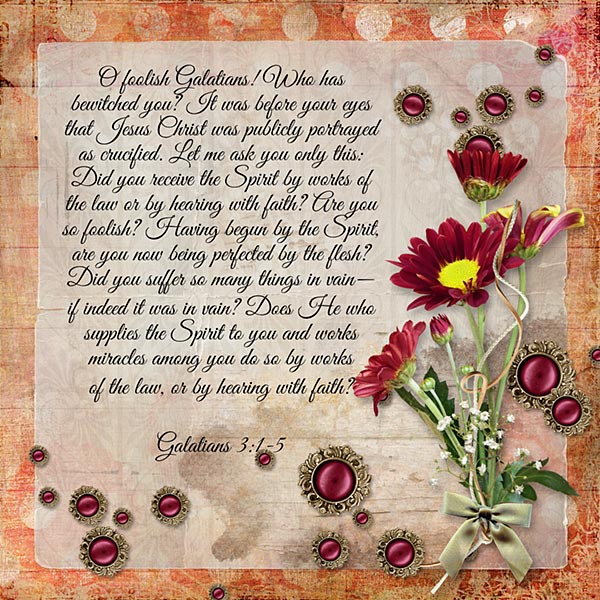 O foolish Galatians! Who has
bewitched you? It was before your eyes
that Jesus Christ was publicly portrayed
as crucified. Let me ask you only this:
Did you receive the Spirit by works of
the law or by hearing with faith? Are you
so foolish? Having begun by the Spirit,
are you now being perfected by the flesh?
Did you suffer so many things in vain—
if indeed it was in vain? Does He who
supplies the Spirit to you and works
miracles among you do so by works
of the law, or by hearing with faith?
Galatians 3:1-5